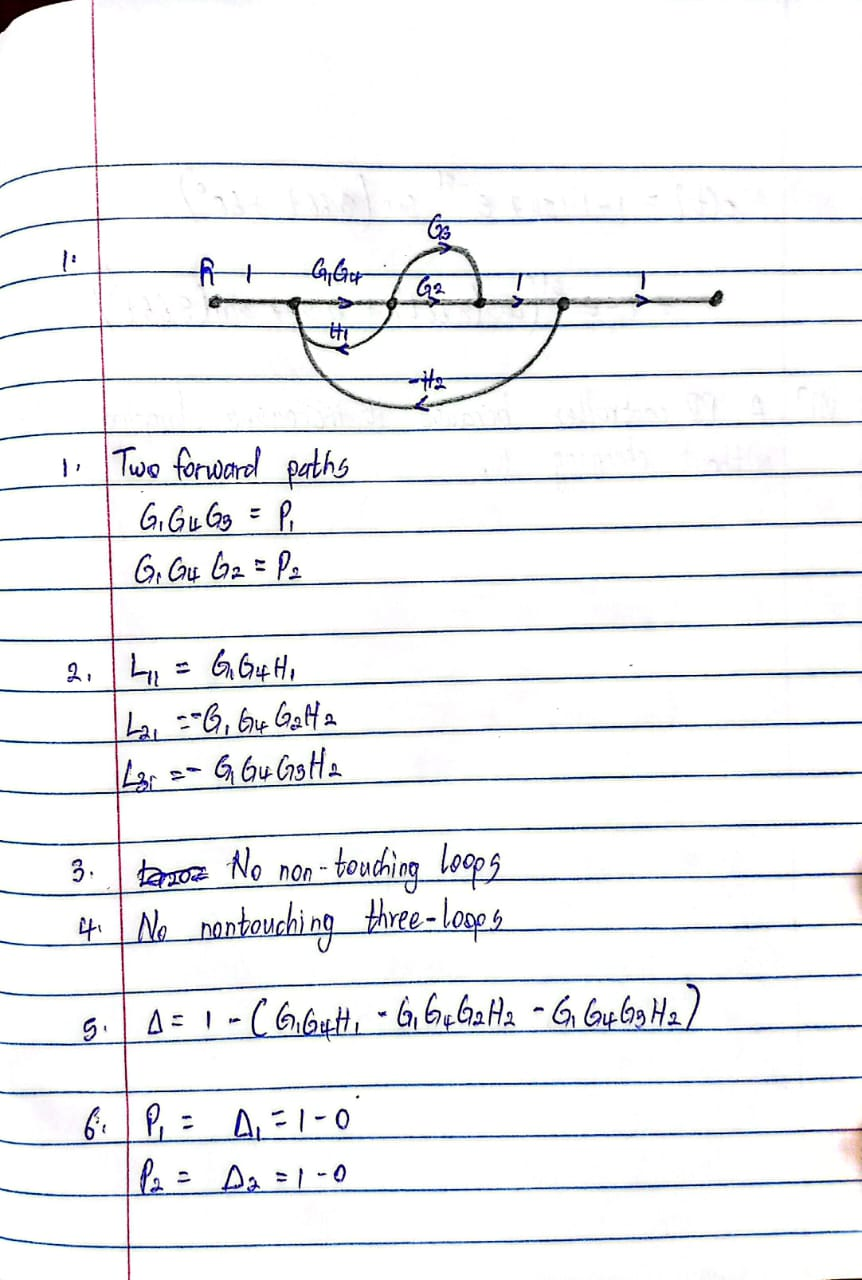 1.
G3
R 1 G1G4 G2 1 1
H1
-H2
1. Two forward paths
G1G4G3 = P1
G1G4G2 = P2
2. L11 = G1G4H1
L21 = -G1G4G2H2
L31 = -G1G4G3H2
3. No non-touching loops
4. No nontouching three-loops
5. Δ = 1 - (G1G4H1 - G1G4G2H2 - G1G4G3H2)
6. P1 = Δ1 = 1-0
P2 = Δ2 = 1-0